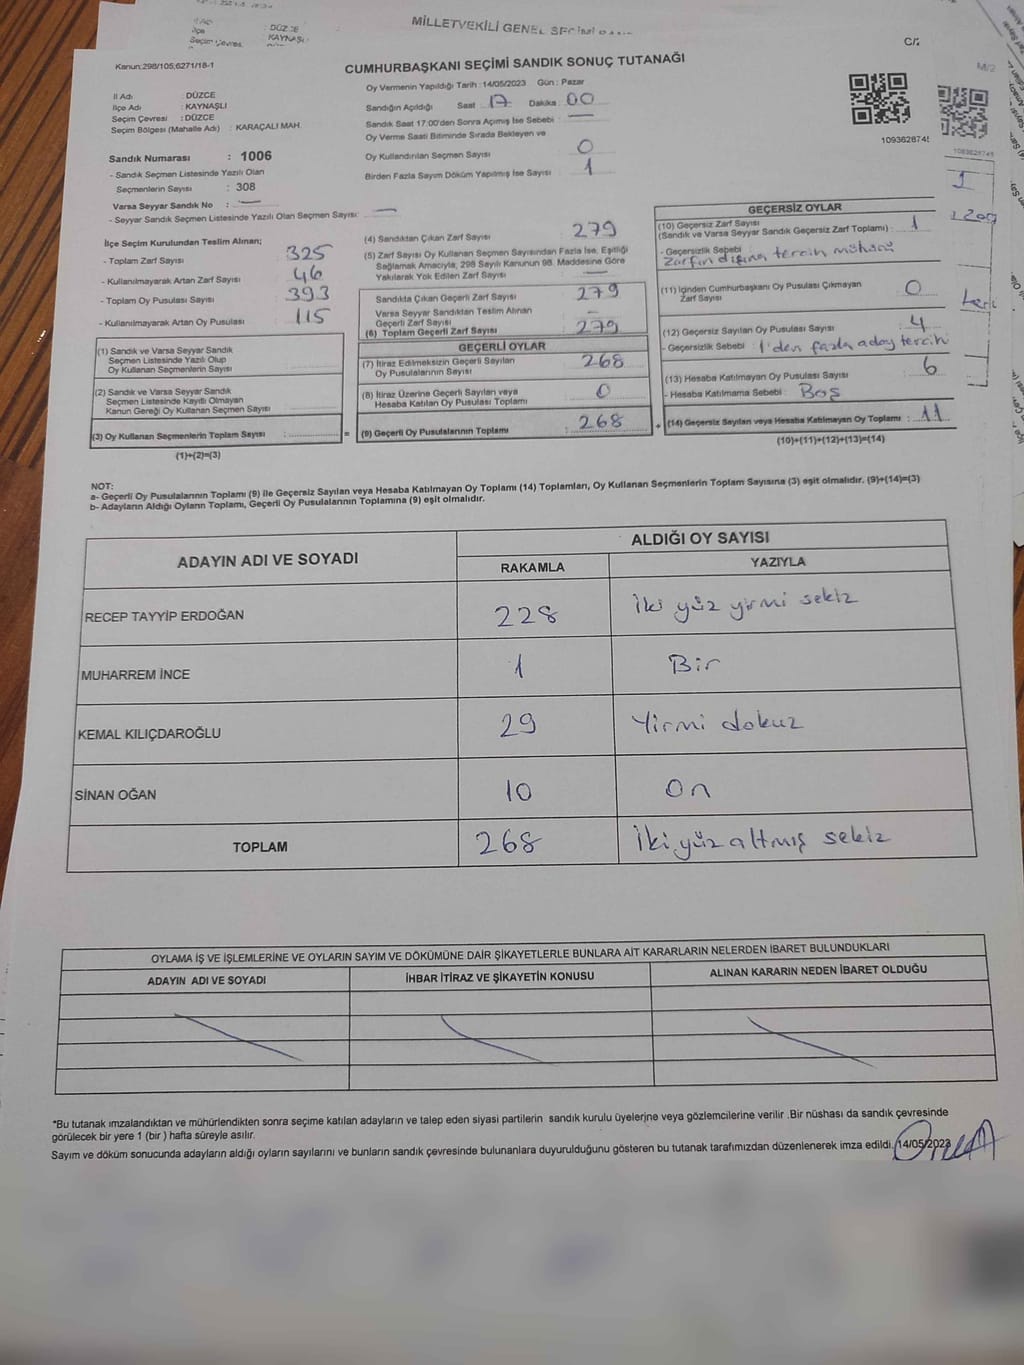 MİLLETVEKİLİ GENEL
DÜZCE
KAYNAŞLI
Seçim Çevres
C/
M/2
Kanun:298/105,6271/18-1
CUMHURBAŞKANI SEÇİMİ SANDIK SONUÇ TUTANAĞI
Oy Vermenin Yapıldığı Tarih :14/05/2023 Gün : Pazar
İl Adı : DÜZCE
İlçe Adı : KAYNAŞLI
Seçim Çevresi : DÜZCE
Seçim Bölgesi (Mahalle Adı) : KARAÇALI MAH.
Sandığın Açıldığı Saat 17 Dakika : 00
Sandık Saat 17.00'den Sonra Açımış İse Sebebi : —
Oy Verme Saati Bitiminde Sırada Bekleyen ve
Oy Kullandırılan Seçmen Sayısı : 0
Birden Fazla Sayım Döküm Yapılmış İse Sayısı : 1
109362874
1093628745
Sandık Numarası : 1006
- Sandık Seçmen Listesinde Yazılı Olan
Seçmenlerin Sayısı : 308
Varsa Seyyar Sandık No : —
- Seyyar Sandık Seçmen Listesinde Yazılı Olan Seçmen Sayısı: —
İlçe Seçim Kurulundan Teslim Alınan;
- Toplam Zarf Sayısı : 325
- Kullanılmayarak Artan Zarf Sayısı : 46
- Toplam Oy Pusulası Sayısı : 393
- Kullanılmayarak Artan Oy Pusulası : 115
(1) Sandık ve Varsa Seyyar Sandık
Seçmen Listesinde Yazılı Olup
Oy Kullanan Seçmenlerin Sayısı :
(2) Sandık ve Varsa Seyyar Sandık
Seçmen Listesinde Kayıtlı Olmayan
Kanun Gereği Oy Kullanan Seçmen Sayısı :
(3) Oy Kullanan Seçmenlerin Toplam Sayısı : =
(1)+(2)=(3)
(4) Sandıktan Çıkan Zarf Sayısı : 279
(5) Zarf Sayısı Oy Kullanan Seçmen Sayısından Fazla İse, Eşitliği
Sağlamak Amacıyla, 298 Sayılı Kanunun 98. Maddesine Göre
Yakılarak Yok Edilen Zarf Sayısı : —
Sandıkta Çıkan Geçerli Zarf Sayısı : 279
Varsa Seyyar Sandıktan Teslim Alınan
Geçerli Zarf Sayısı : —
(6) Toplam Geçerli Zarf Sayısı : 279
GEÇERLİ OYLAR
(7) İtiraz Edilmeksizin Geçerli Sayılan
Oy Pusulalarının Sayısı : 268
(8) İtiraz Üzerine Geçerli Sayılan veya
Hesaba Katılan Oy Pusulası Toplamı : 0
(9) Geçerli Oy Pusulalarının Toplamı : 268 +
GEÇERSİZ OYLAR
(10) Geçersiz Zarf Sayısı
(Sandık ve Varsa Seyyar Sandık Geçersiz Zarf Toplamı) : 1
- Geçersizlik Sebebi :
Zarfın dışına tercih mühürü
(11) İçinden Cumhurbaşkanı Oy Pusulası Çıkmayan
Zarf Sayısı : 0
(12) Geçersiz Sayılan Oy Pusulası Sayısı : 4
- Geçersizlik Sebebi : 1'den fazla aday tercih
(13) Hesaba Katılmayan Oy Pusulası Sayısı : 6
- Hesaba Katılmama Sebebi : Boş
(14) Geçersiz Sayılan veya Hesaba Katılmayan Oy Toplamı : 11
(10)+(11)+(12)+(13)=(14)
NOT:
a- Geçerli Oy Pusulalarının Toplamı (9) ile Geçersiz Sayılan veya Hesaba Katılmayan Oy Toplamı (14) Toplamları, Oy Kullanan Seçmenlerin Toplam Sayısına (3) eşit olmalıdır. (9)+(14)=(3)
b- Adayların Aldığı Oyların Toplamı, Geçerli Oy Pusulalarının Toplamına (9) eşit olmalıdır.
ADAYIN ADI VE SOYADI
ALDIĞI OY SAYISI
RAKAMLA YAZIYLA
RECEP TAYYİP ERDOĞAN 228 İki yüz yirmi sekiz
MUHARREM İNCE 1 Bir
KEMAL KILIÇDAROĞLU 29 Yirmi dokuz
SİNAN OĞAN 10 On
TOPLAM 268 İki yüz altmış sekiz
OYLAMA İŞ VE İŞLEMLERİNE VE OYLARIN SAYIM VE DÖKÜMÜNE DAİR ŞİKAYETLERLE BUNLARA AİT KARARLARIN NELERDEN İBARET BULUNDUKLARI
ADAYIN ADI VE SOYADI İHBAR İTİRAZ VE ŞİKAYETİN KONUSU ALINAN KARARIN NEDEN İBARET OLDUĞU
*Bu tutanak imzalandıktan ve mühürlendikten sonra seçime katılan adayların ve talep eden siyasi partilerin sandık kurulu üyelerine veya gözlemcilerine verilir .Bir nüshası da sandık çevresinde
görülecek bir yere 1 (bir ) hafta süreyle asılır.
Sayım ve döküm sonucunda adayların aldığı oyların sayılarını ve bunların sandık çevresinde bulunanlara duyurulduğunu gösteren bu tutanak tarafımızdan düzenlenerek imza edildi. 14/05/2023